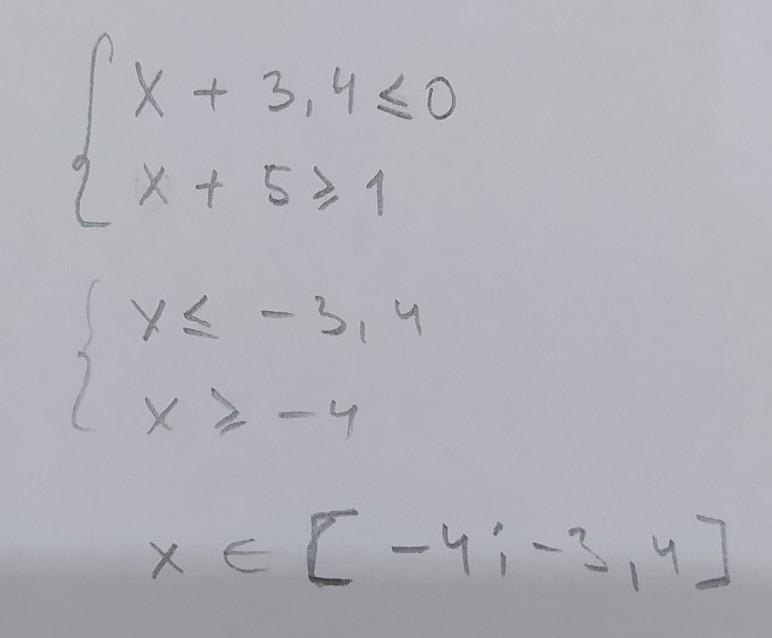 x + 3,4 ≤ 0
x + 5 ≥ 1
x ≤ -3,4
x ≥ -4
x ∈ [-4; -3,4]